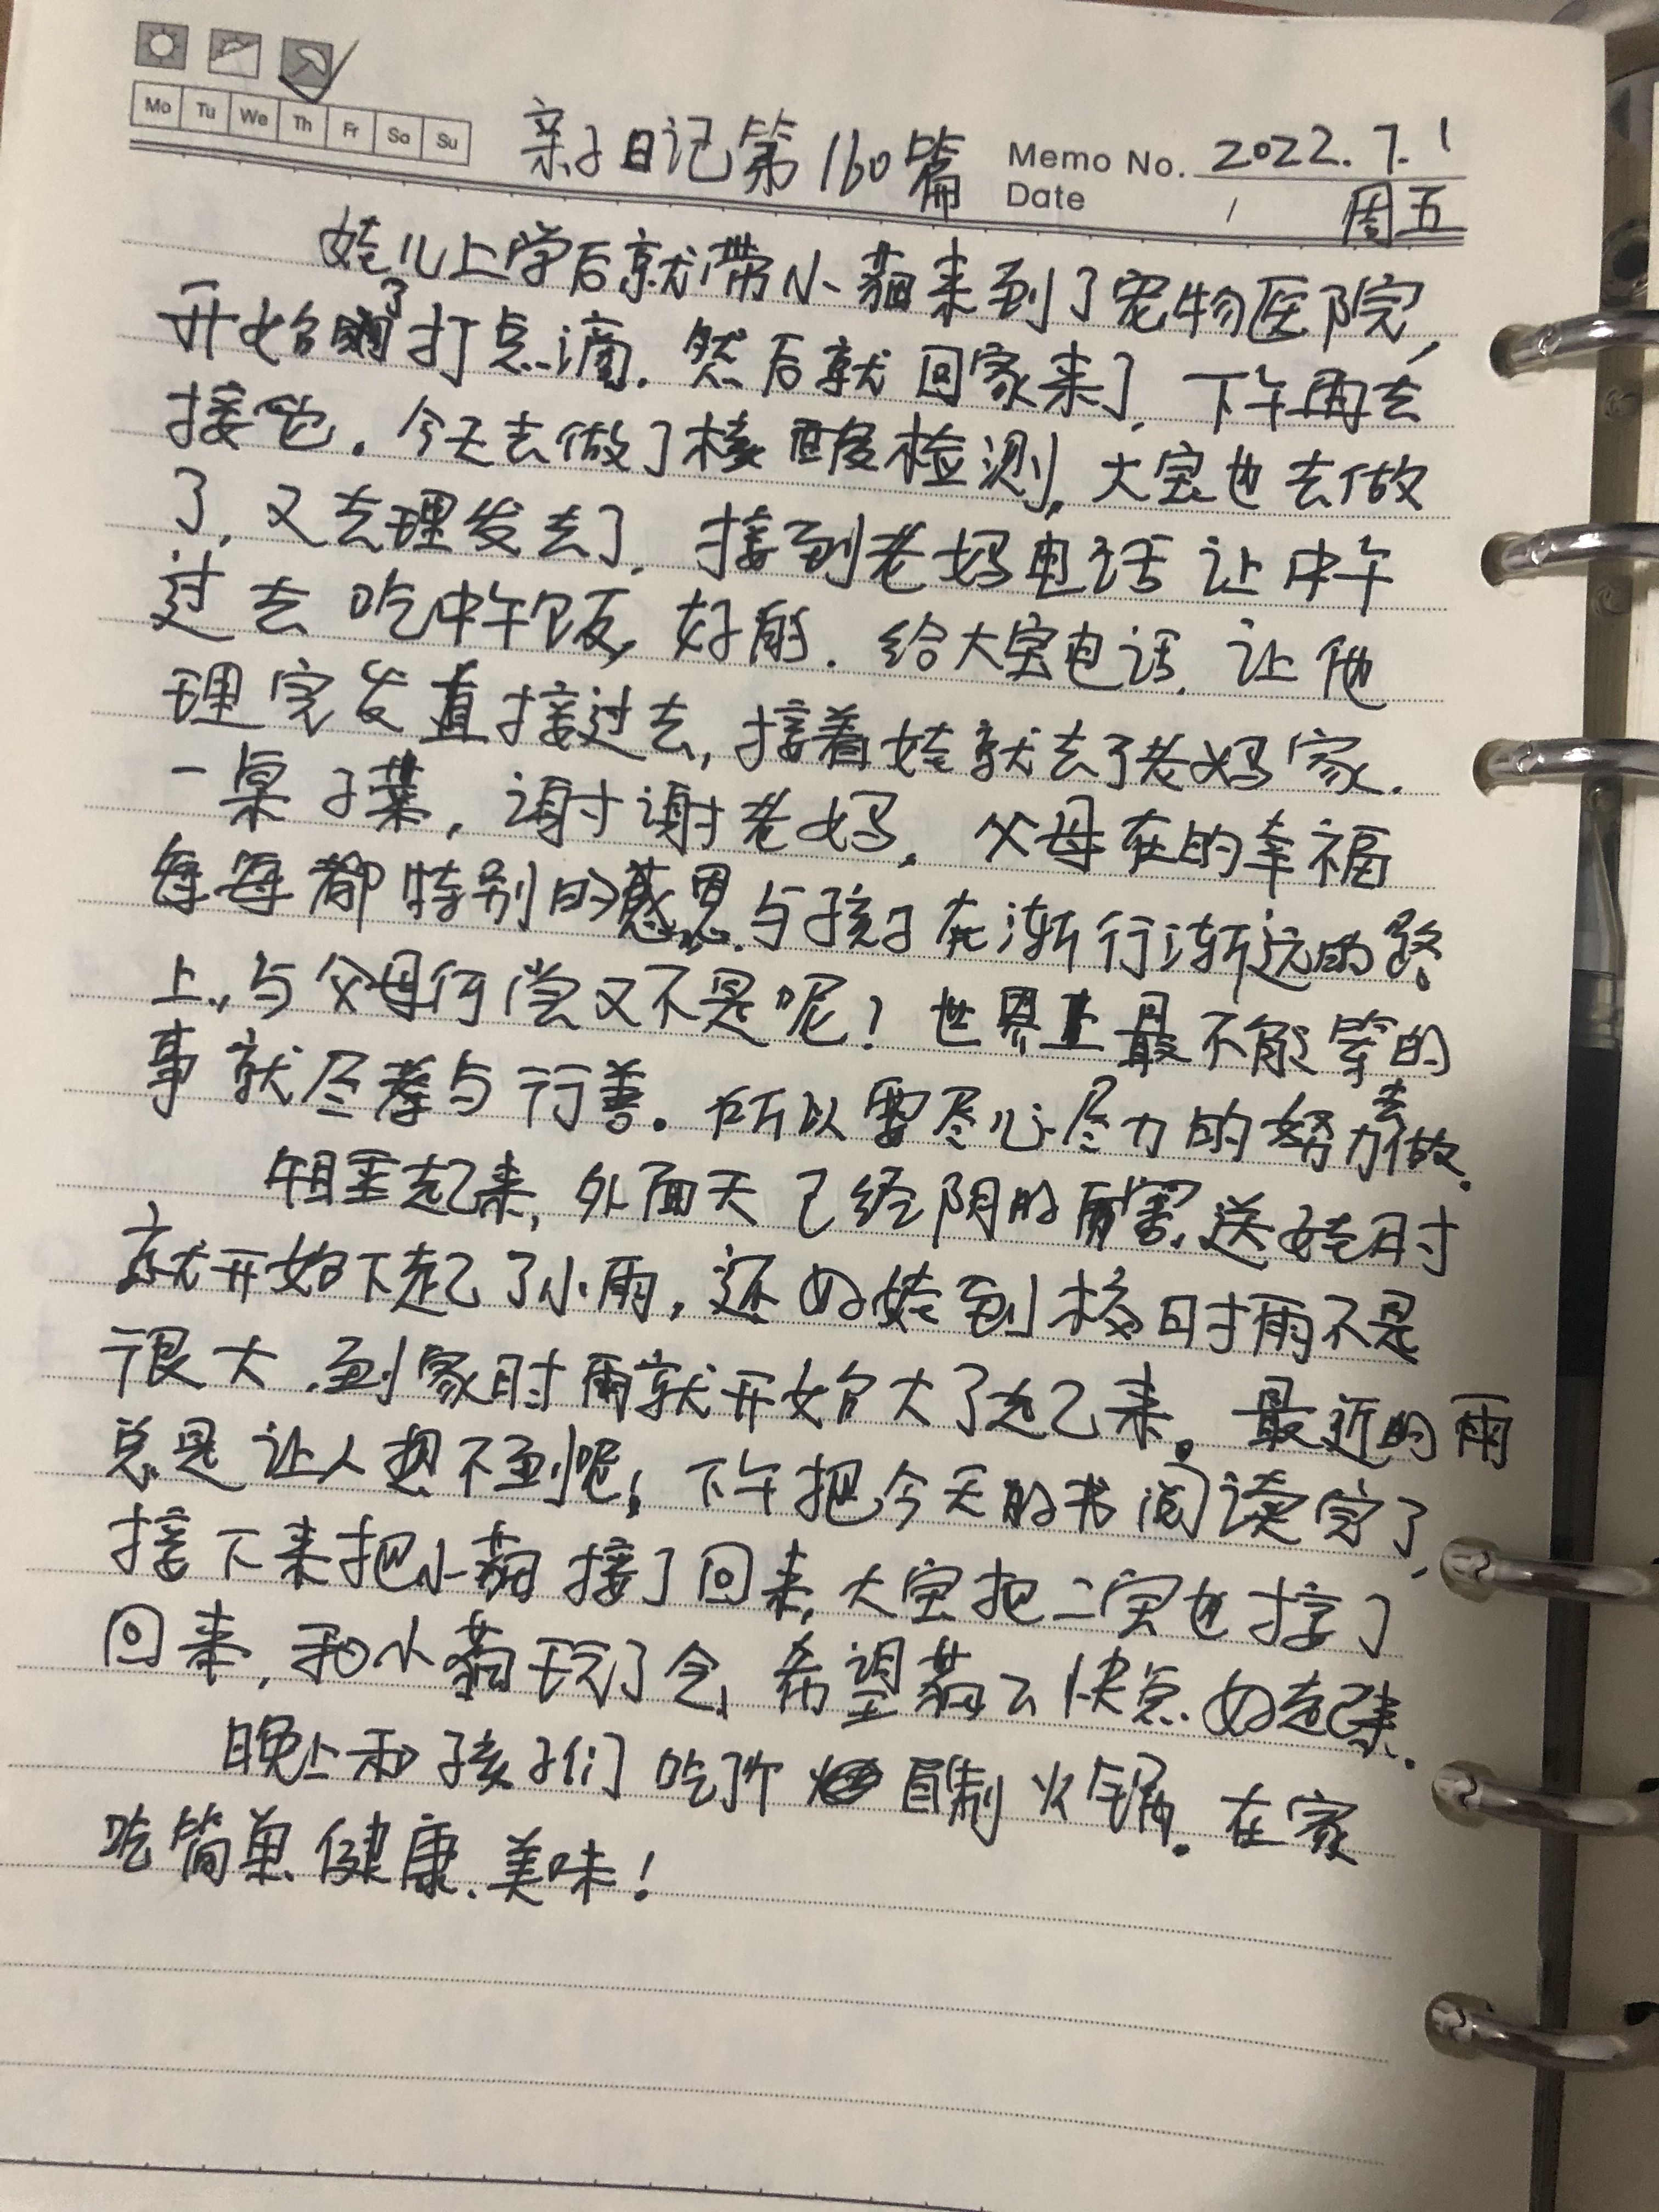 Mo Tu We Th Fr Sa Su
亲子日记第160篇 Memo No. 2022.7.1
Date / 周五
娃儿上学后就带小猫来到了宠物医院,
开始了打点滴.然后就回家来了,下午再去
接它.今天去做了核酸检测,大宝也去做
了,又去理发去了.接到老妈电话让中午
过去吃中午饭,好的.给大宝电话,让他
理完发直接过去,接着娃就去了老妈家.
一桌子菜,谢谢老妈.父母在的幸福
每每都特别的感恩.与孩子在渐行渐远的路
上,与父母何尝又不是呢?世界上最不能等的
事就尽孝与行善。所以要尽心尽力的努力去做.
午睡起来,外面天已经阴的厉害,送娃时
就开始下起了小雨,还好娃到校时雨不是
很大.到家时雨就开始大了起来。最近的雨
总是让人想不到呢!下午把今天的书阅读完了,
接下来把小猫接了回来,大宝把二宝也接了
回来,和小猫玩了会,希望猫云快点好起来.
晚上和孩子们吃了个自制火锅。在家
吃简单.健康.美味!